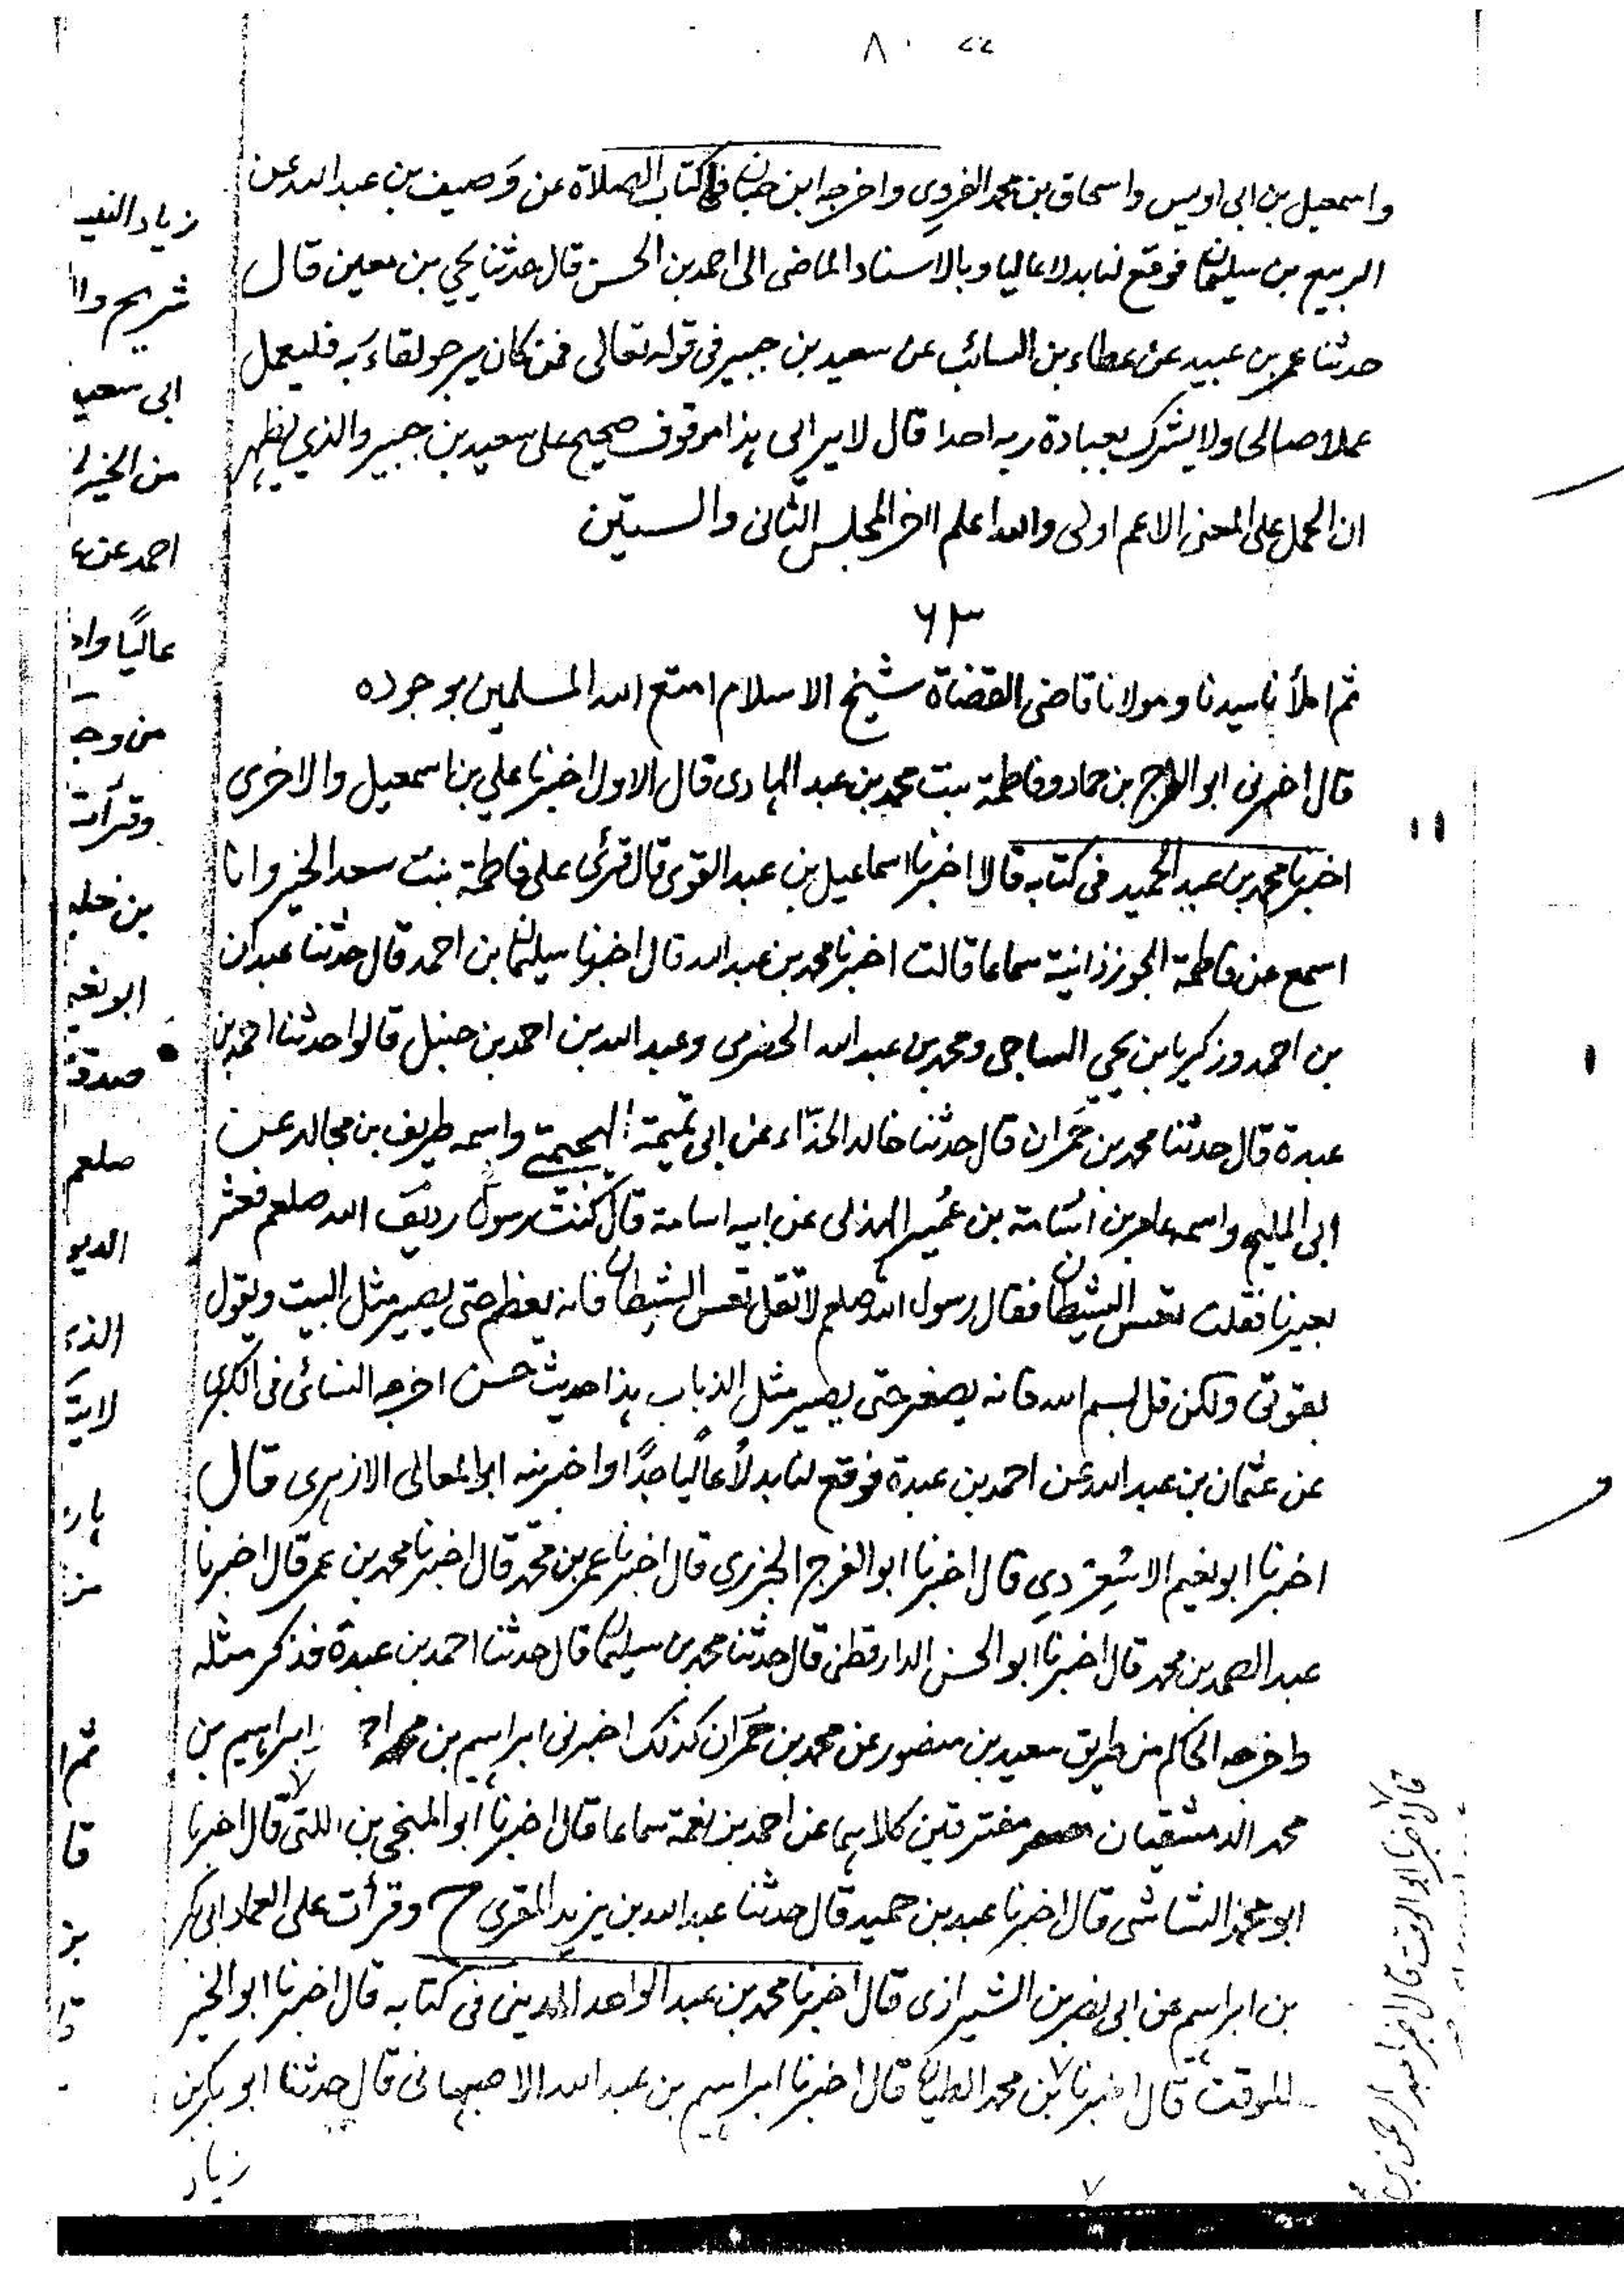 ٨٠
واسمعيل بن ابى اويس واسحاق بن محمد الفروي واخرجه ابن حبان في كتاب الصلاة عن وَصيف بن عبد الله عن
الربيع بن سليمان فوقع لنا بدلا عاليا وبالاسناد الماضى الى احمد بن الحسن قال حدثنا يحيي بن معين قال
حدثنا عمر بن عبيد عن عطاء بن السائب عن سعيد بن جبير فى قوله تعالى فمن كان يرجو لقاء ربه فليعمل
عملا صالحا ولا يشرك بعبادة ربه احدا قال لا يرائى هذا موقوف صحيح على سعيد بن جبير والذي يظهر
ان الحمل على المعنى الاعم اولى والله اعلم اخر المجلس الثانى والستين
٦٣
ثم املأنا سيدنا ومولانا قاضى القضاة شيخ الاسلام امتع الله المسلمين بوجوده
قال اخبرنى ابو الفرج بن حماد وفاطمة بنت محمد بن عبد الهادى قال الاول اخبرنا علي بن اسمعيل والاخرى
اخبرنا محمد بن عبد الحميد فى كتابه قالا اخبرنا اسماعيل بن عبد القوى قال قرئ على فاطمة بنت سعد الخير وانا
اسمع عن فاطمة الجوزذانية سماعا قالت اخبرنا محمد بن عبد الله قال اخبرنا سليمان بن احمد قال حدثنا عبدان
بن احمد وزكريا بن يحيي الساجى ومحمد بن عبد الله الحضرمى وعبد الله بن احمد بن حنبل قالوا حدثنا احمد بن
عبدة قال حدثنا محمد بن حُمران قال حدثنا خالد الحذّاء عن ابى تميمة الهجيمي واسمه طريف بن مجالد عن
ابى المليح واسمه عامر بن اسامة بن عُمير الهذلى عن ابيه اسامة قال كنت رسول رديف الله صلعم فعثر
بعيرنا فقلت تعس الشيطان فقال رسول الله صلعم لا تقل تعس الشيطان فانه يعظم حتى يصير مثل البيت ويقول
بقوتى ولكن قل بسم الله فانه يصغر حتى يصير مثل الذباب هذا حديث حسن اخرجه النسائى فى الكبرى
عن عثمان بن عبد الله عن احمد بن عبدة فوقع لنا بدلاً عاليًا جدًا واخبرنيه ابو المعالى الازهرى قال
اخبرنا ابو نعيم الاسْعِرْدي قال اخبرنا ابو الفرج الجزري قال اخبرنا عمر بن محمد قال اخبرنا محمد بن عمر قال اخبرنا
عبد الصمد بن محمد قال اخبرنا ابو الحسن الدارقطنى قال حدثنا محمد بن سليمان قال حدثنا احمد بن عبدة فذكر مثله
واخرجه الحاكم من طريق سعيد بن منصور عن محمد بن حُمَران كذلك اخبرنى ابراهيم بن محمد ابراهيم بن
محمد الدمشقيان مفترقين كلاهما عن احمد بن نعمة سماعا قال اخبرنا ابو المنجى بن اللتى قال اخبرنا
ابو محمد الشاشى قال اخبرنا عبد بن حميد قال حدثنا عبد الله بن يزيد المقرى ح وقرأت على العماد ابى بكر
بن ابراهيم عن ابى نصر بن الشيرازى قال اخبرنا محمد بن عبد الواحد المدينى فى كتابه قال اخبرنا ابو الخير
الموقت قال اخبرنا بن محمد الطيان قال اخبرنا ابراهيم بن عبد الله الاصبهانى قال حدثنا ابو بكر بن
زياد
قال اخبرنا ابو الوقت قال اخبرنا عبد الرحمن بن
زياد النيـ
شريح وا
ابى سعيد
من الخير
احمد عن
عاليًا واخ
من وجـ
وقرأت
بن خليـ
ابو نعيم
صدقـ
صلعم
الديو
الذ
ثم ا
قا